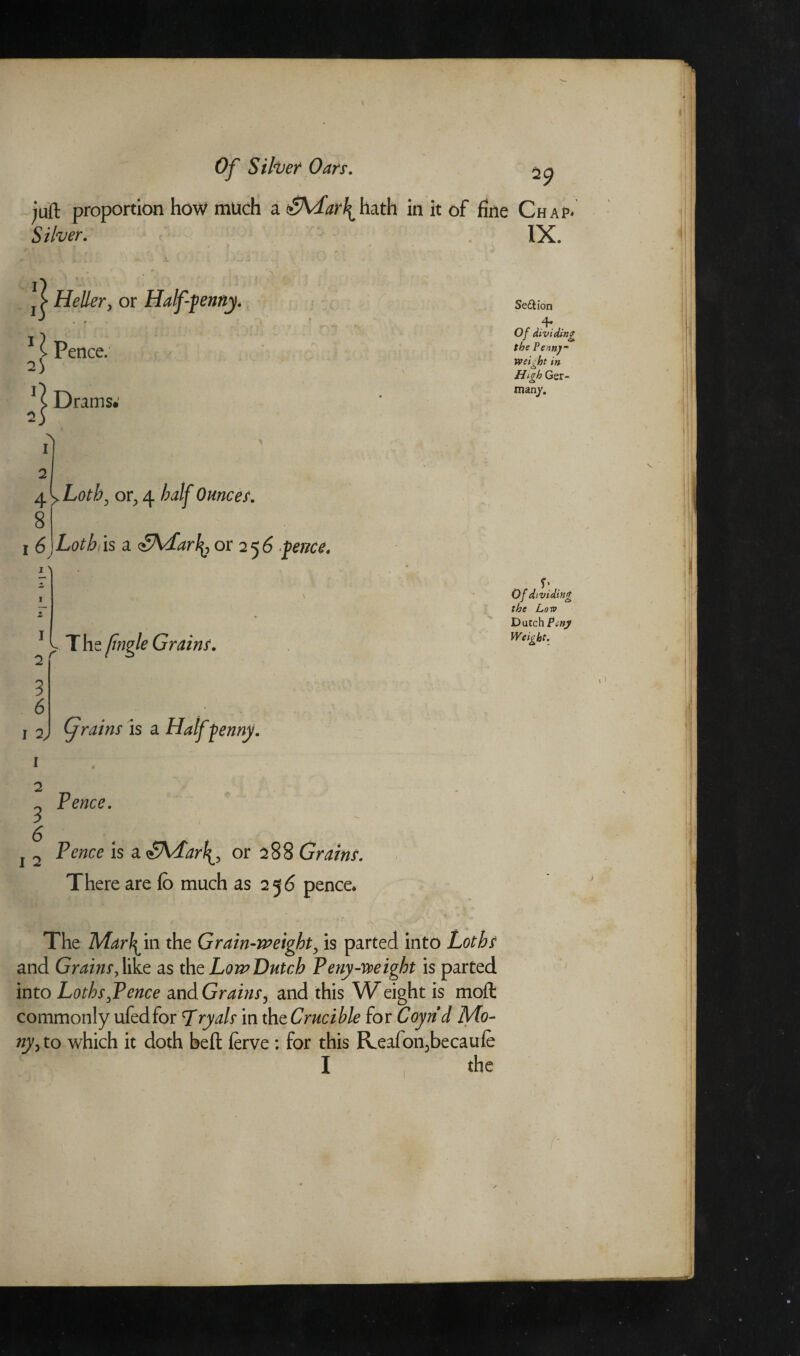 Of Silver Oars.
29
juſt proportion how much a Mark hath in it of fine
Silver.
Chap.
IX.
1
1 } Heller, or Half-penny.
1
2 } Pence.
1
2 } Drams.
Section
4.
Of dividing
the Penny-
weight in
High Ger-
many.
1
2
4 } Loth, or, 4 half Ounces.
8
16 Loth is a Mark, or 256 pence.
1/2
1/2
1
2 } The ſingle Grains.
3
6
12 Grains is a Half penny.
5.
Of dividing
the Low
Dutch Peny
Weight.
1
2
3 Pence.
6
12 Pence is a Mark, or 288 Grains.
There are ſo much as 256 pence.
The Mark in the Grain-weight, is parted into Loths
and Grains, like as the Low Dutch Peny-weight is parted
into Loths, Pence and Grains, and this Weight is moſt
commonly uſed for Tryals in the Crucible for Coyn'd Mo-
ny, to which it doth beſt ſerve : for this Reaſon, becauſe
I
the